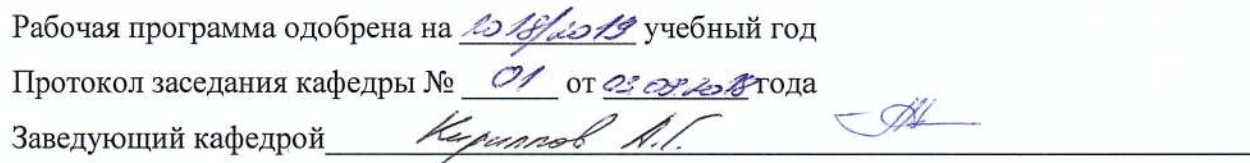 Рабочая программа одобрена на 2018/2019 учебный год
Протокол заседания кафедры № 01 от 03 09 2018 года
Заведующий кафедрой Кириллов А.Г.